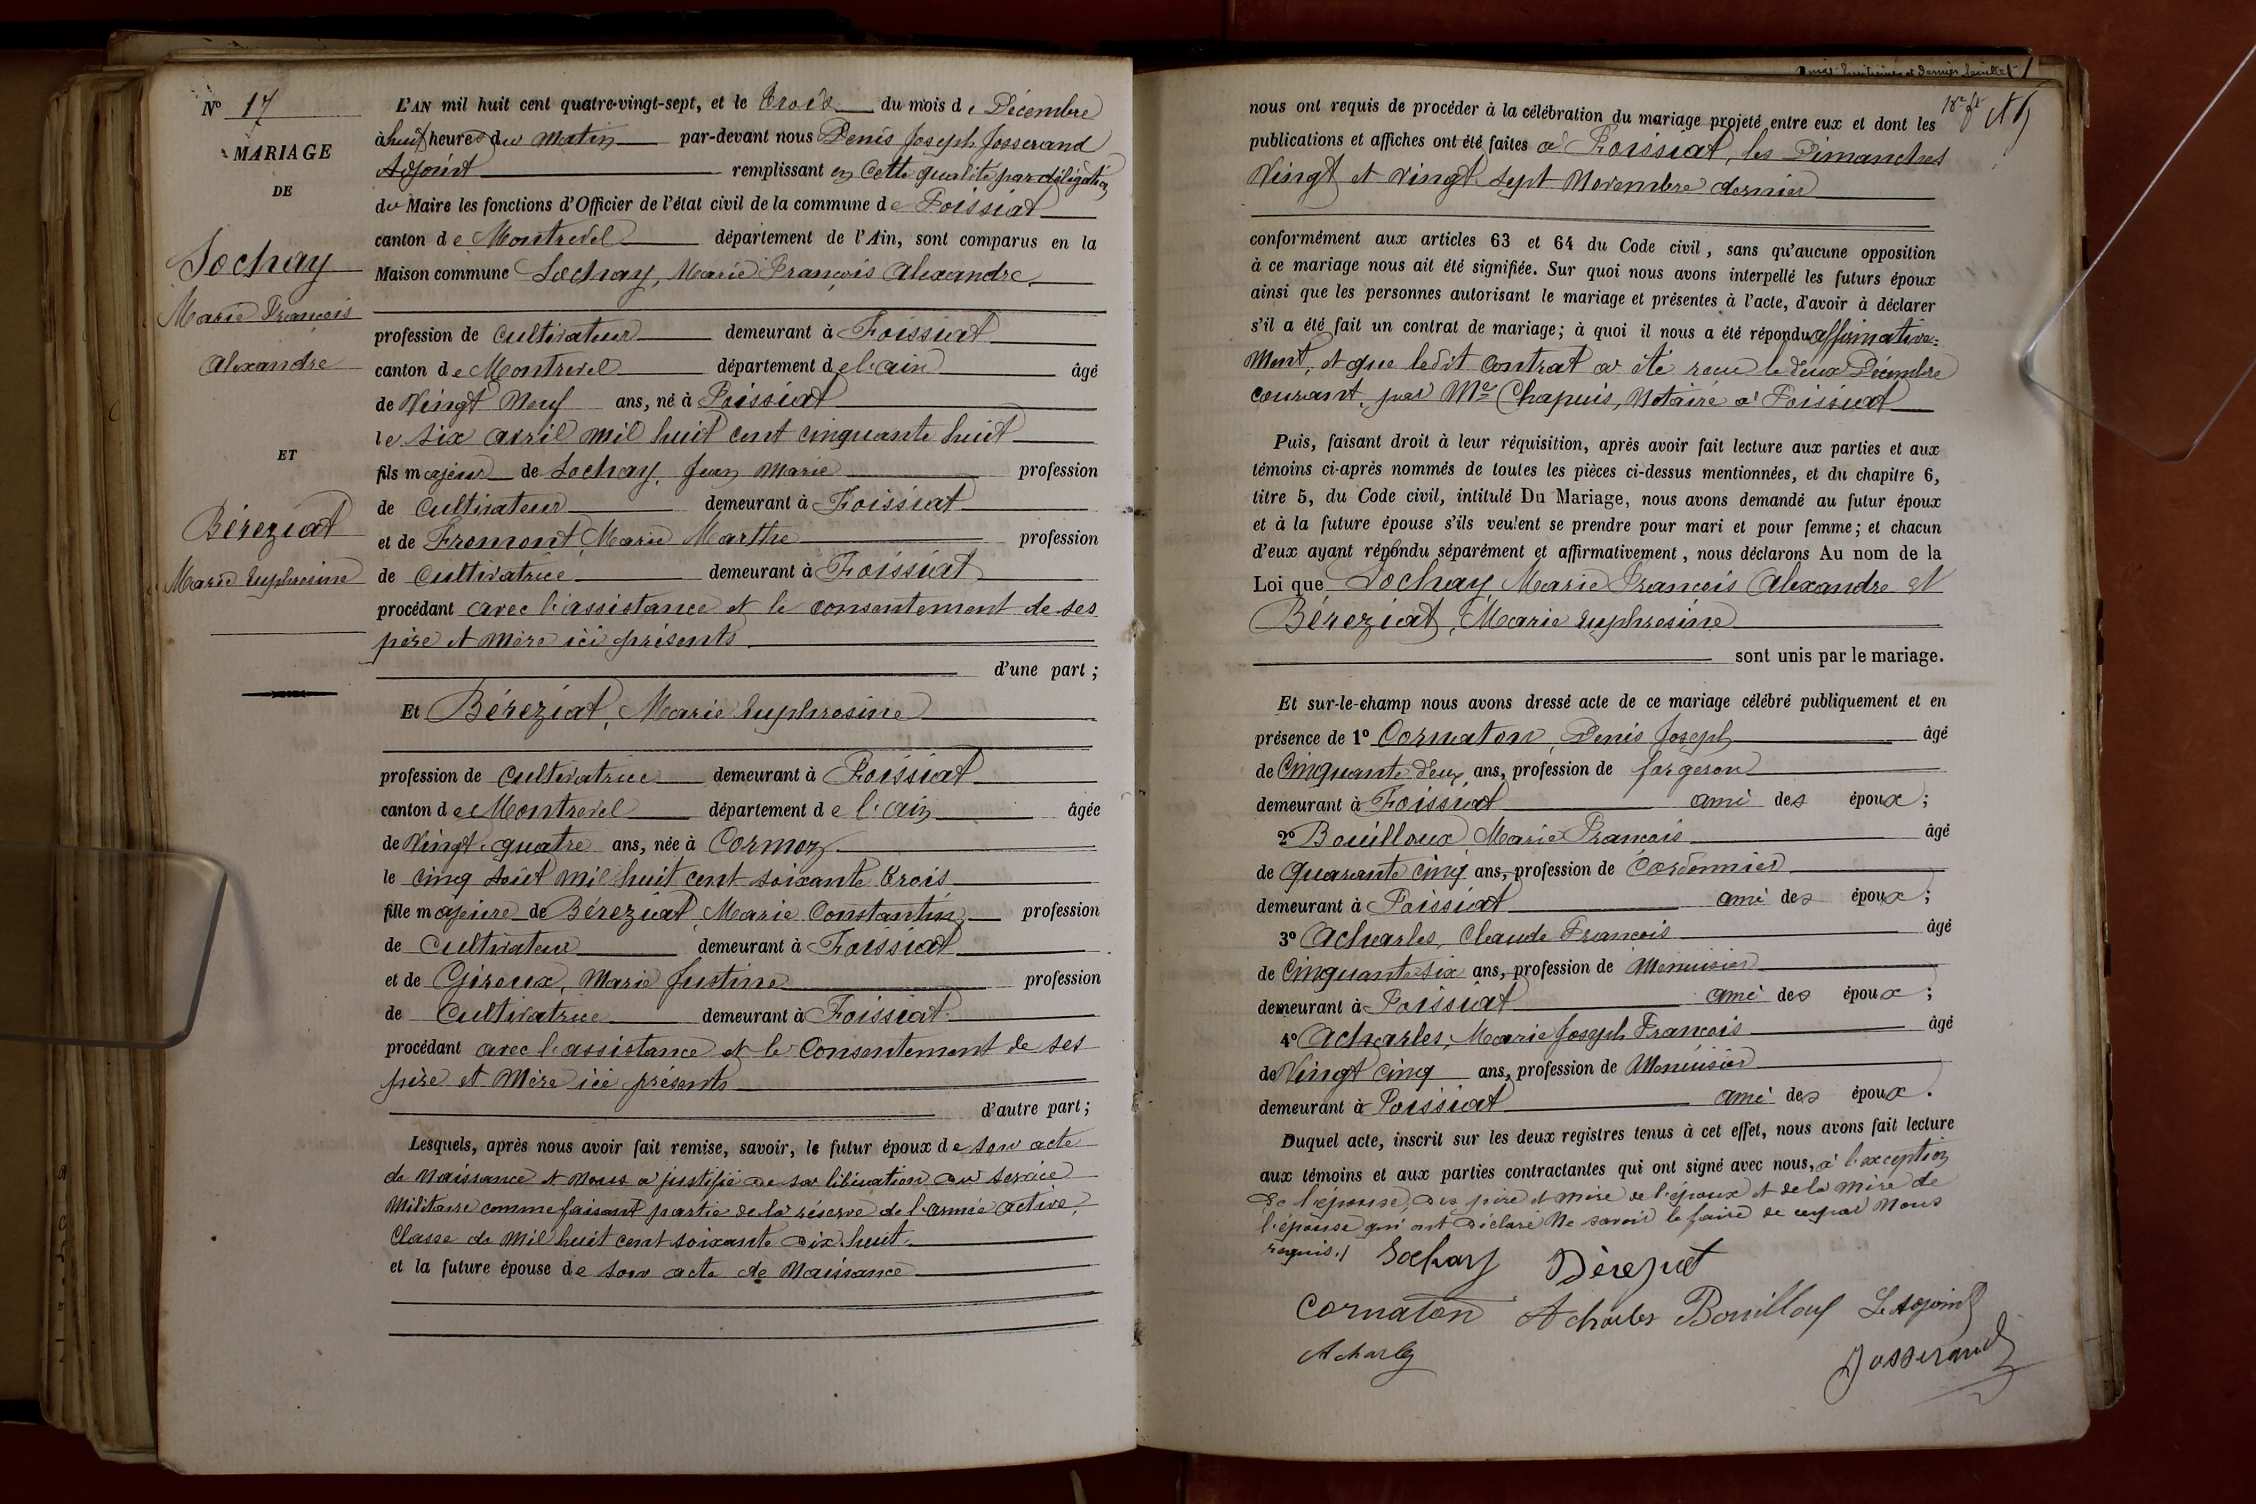 N° 17
MARIAGE
DE
Sochay
Marie François
Alexandre
ET
Béreziat
Marie Euphrosine
L'AN mil huit cent quatre-vingt-sept, et le trois du mois de Décembre
à huit heures du matin par-devant nous Denis Joseph Josserand
Adjoint remplissant en cette qualité par délégation
du Maire les fonctions d'Officier de l'état civil de la commune de Foissiat
canton de Montrevel département de l'Ain, sont comparus en la
Maison commune Sochay, Marie François Alexandre
profession de cultivateur demeurant à Foissiat
canton de Montrevel département de l'ain âgé
de Vingt Neuf ans, né à Foissiat
le six avril mil huit cent cinquante huit
fils majeur de Sochay, Jean Marie profession
de cultivateur demeurant à Foissiat
et de Fromont, Marie Marthe profession
de cultivatrice demeurant à Foissiat
procédant avec l'assistance et le consentement de ses
père et mère ici présents
d'une part ;
Et Béreziat, Marie Euphrosine
profession de cultivatrice demeurant à Foissiat
canton de Montrevel département de l'ain âgée
de Vingt quatre ans, née à Cormoz
le cinq Août mil huit cent soixante trois
fille majeure de Béreziat, Marie Constantin profession
de cultivateur demeurant à Foissiat
et de Giroux, Marie Justine profession
de cultivatrice demeurant à Foissiat
procédant avec l'assistance et le Consentement de ses
père et mère ici présents
d'autre part ;
Lesquels, après nous avoir fait remise, savoir, le futur époux de son acte
de Naissance et Nous a justifié de sa libération du service
Militaire comme faisant partie de la réserve de l'armée active,
Classe de Mil huit cent soixante dix huit
et la future épouse de son acte de Naissance
dernier feuillet
nous ont requis de procéder à la célébration du mariage projeté entre eux et dont les
publications et affiches ont été faites à Foissiat, les Dimanches
Vingt et vingt sept Novembre dernier
conformément aux articles 63 et 64 du Code civil, sans qu'aucune opposition
à ce mariage nous ait été signifiée. Sur quoi nous avons interpellé les futurs époux
ainsi que les personnes autorisant le mariage et présentes à l'acte, d'avoir à déclarer
s'il a été fait un contrat de mariage; à quoi il nous a été répondu affirmative=
Ment, et que ledit contrat a été reçu le deux Décembre
courant, par Me Chapuis, Notaire à Foissiat
Puis, faisant droit à leur réquisition, après avoir fait lecture aux parties et aux
témoins ci-après nommés de toutes les pièces ci-dessus mentionnées, et du chapitre 6,
titre 5, du Code civil, intitulé Du Mariage, nous avons demandé au futur époux
et à la future épouse s'ils veulent se prendre pour mari et pour femme; et chacun
d'eux ayant répondu séparément et affirmativement, nous déclarons Au nom de la
Loi que Sochay, Marie François Alexandre et
Béreziat, Marie Euphrosine
sont unis par le mariage.
Et sur-le-champ nous avons dressé acte de ce mariage célébré publiquement et en
présence de 1° Cornaton, Denis Joseph âgé
de Cinquante deux ans, profession de forgeron
demeurant à Foissiat ami des époux ;
2° Bouilloux, Marie François âgé
de quarante cinq ans, profession de Cordonnier
demeurant à Foissiat ami des époux ;
3° Acharles, Claude François âgé
de Cinquante six ans, profession de Menuisier
demeurant à Foissiat ami des époux ;
4° Acharles, Marie Joseph François âgé
de Vingt cinq ans, profession de Menuisier
demeurant à Foissiat ami des époux.
Duquel acte, inscrit sur les deux registres tenus à cet effet, nous avons fait lecture
aux témoins et aux parties contractantes qui ont signé avec nous, à l'exception
de l'épouse, des père et mère de l'époux et de la mère de
l'épouse qui ont déclaré ne savoir le faire de ce par Nous
requis./ Sochay Béreziat
Cornaton Acharles Bouilloux L'adjoint
Acharles Josserand